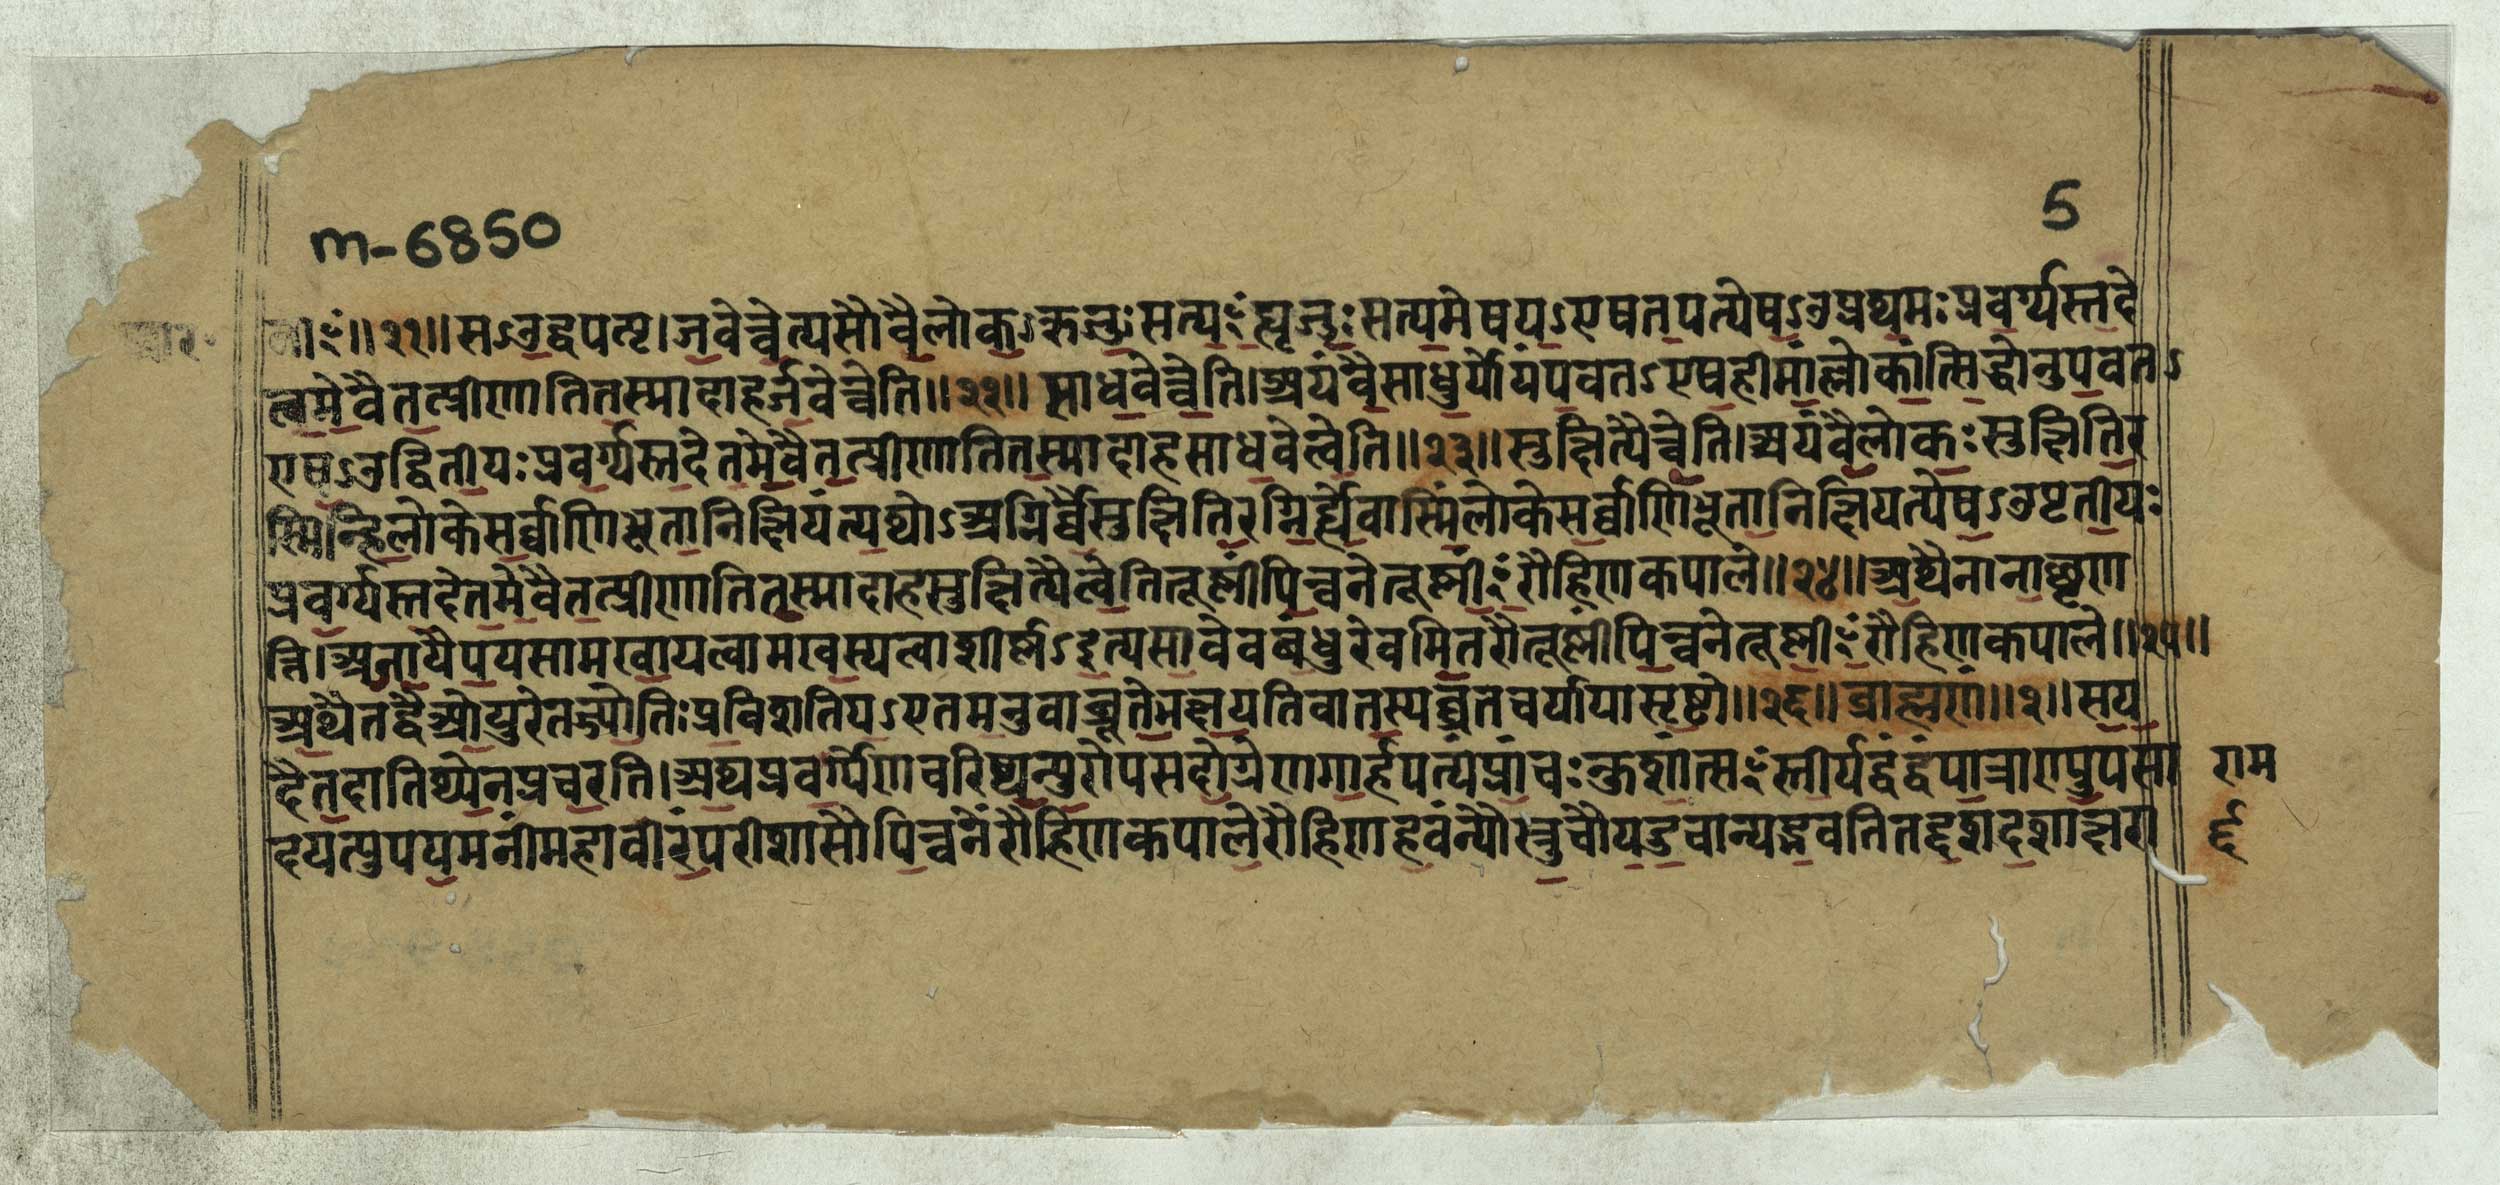 m-6850
5
ᳪ॥२१॥सऽउद्वपत्य।जवेत्वेत्यसौवैलोकऽऋजुःसत्यᳪह्यृजुःसत्यमेषयऽएषतपत्येषऽउप्रथमःप्रवर्ग्यस्तदे
तमेवैतत्प्रीणातितस्मादाहर्जवेत्वेति॥२२॥साधवेत्वेति।अयंवैसाधुर्योयंपवतऽएषहीमांल्लोकांत्सिद्धोनुपवतऽ
एषऽउद्वितीयःप्रवर्ग्यस्तदेतमेवैतत्प्रीणातितस्मादाहसाधवेत्वेति॥२३॥सुक्षित्यैत्वेति।अयंवैलोकःसुक्षितिर
स्मिन्हिलोकेसर्वाणिभूतानिक्षियंत्यथोऽअग्निर्वैसुक्षितिरग्निर्ह्येवास्मिंलोकेसर्वाणिभूतानिक्षियत्येषऽउतृतीयः
प्रवर्ग्यस्तदेतमेवैतत्प्रीणातितस्मादाहसुक्षित्यैत्वेतितूष्णींपिन्वनेतूष्णींᳪरौहिणकपाले॥२४॥अथैनानाछृण
त्ति।अजायैपयसामखायत्वामखस्यत्वाशीर्ष्णऽइत्यसावेवबंधुरेवमितरौतूष्णींपिन्वनेतूष्णींᳪरौहिणकपाले॥२५॥
अथैतद्वैआयुरेतज्ज्योतिःप्रविशतियऽएतमनुवाब्रूतेभक्षयतिवातस्यव्रतचर्यायासृष्टौ॥२६॥ब्राह्मणं॥२॥सय
दैतदातिथ्येनप्रचरति।अथप्रवर्ग्येणचरिष्यन्पुरोपसदोग्रेणगार्हपत्यंप्रांचःकुशांत्सᳪस्तीर्यद्वंद्वंपात्राण्युपसा
राम
दयत्युपयमनींमहावीरंपरीशासौपिन्वनेरौहिणकपालेरौहिणहवंन्यौस्रुचौयदुचान्यद्भवतितद्दशदशाक्षरा